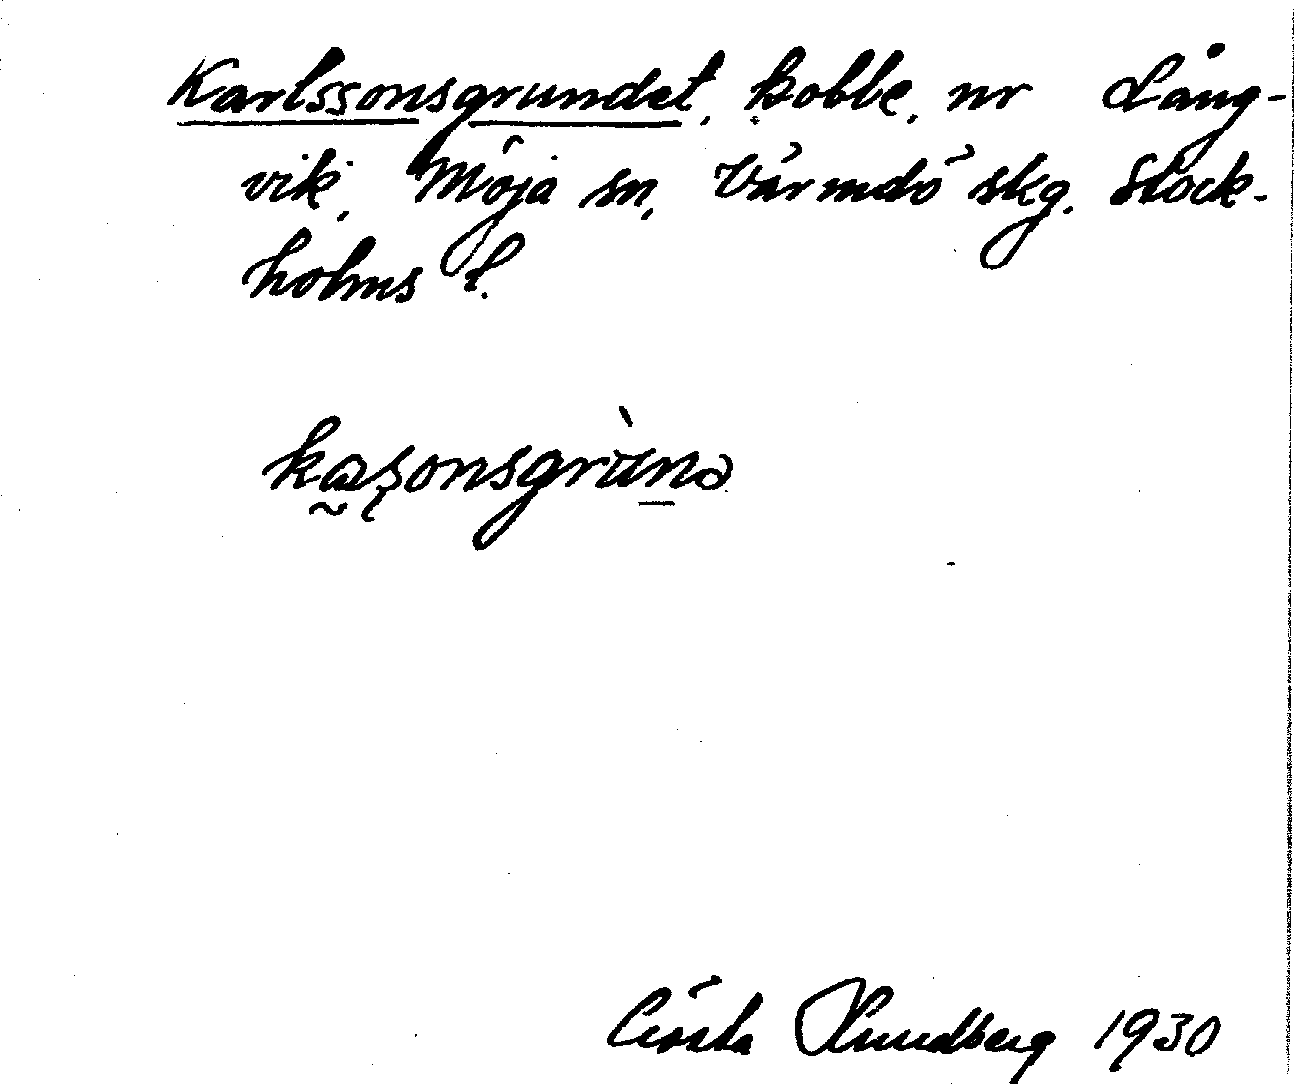 Karlssonsgrundet, kobbe, nr Lång-
vik, Möja sn, Värmdö skg. Stock-
holms l.
kaʂonsgrùnə
Gösta Lundberg 1930